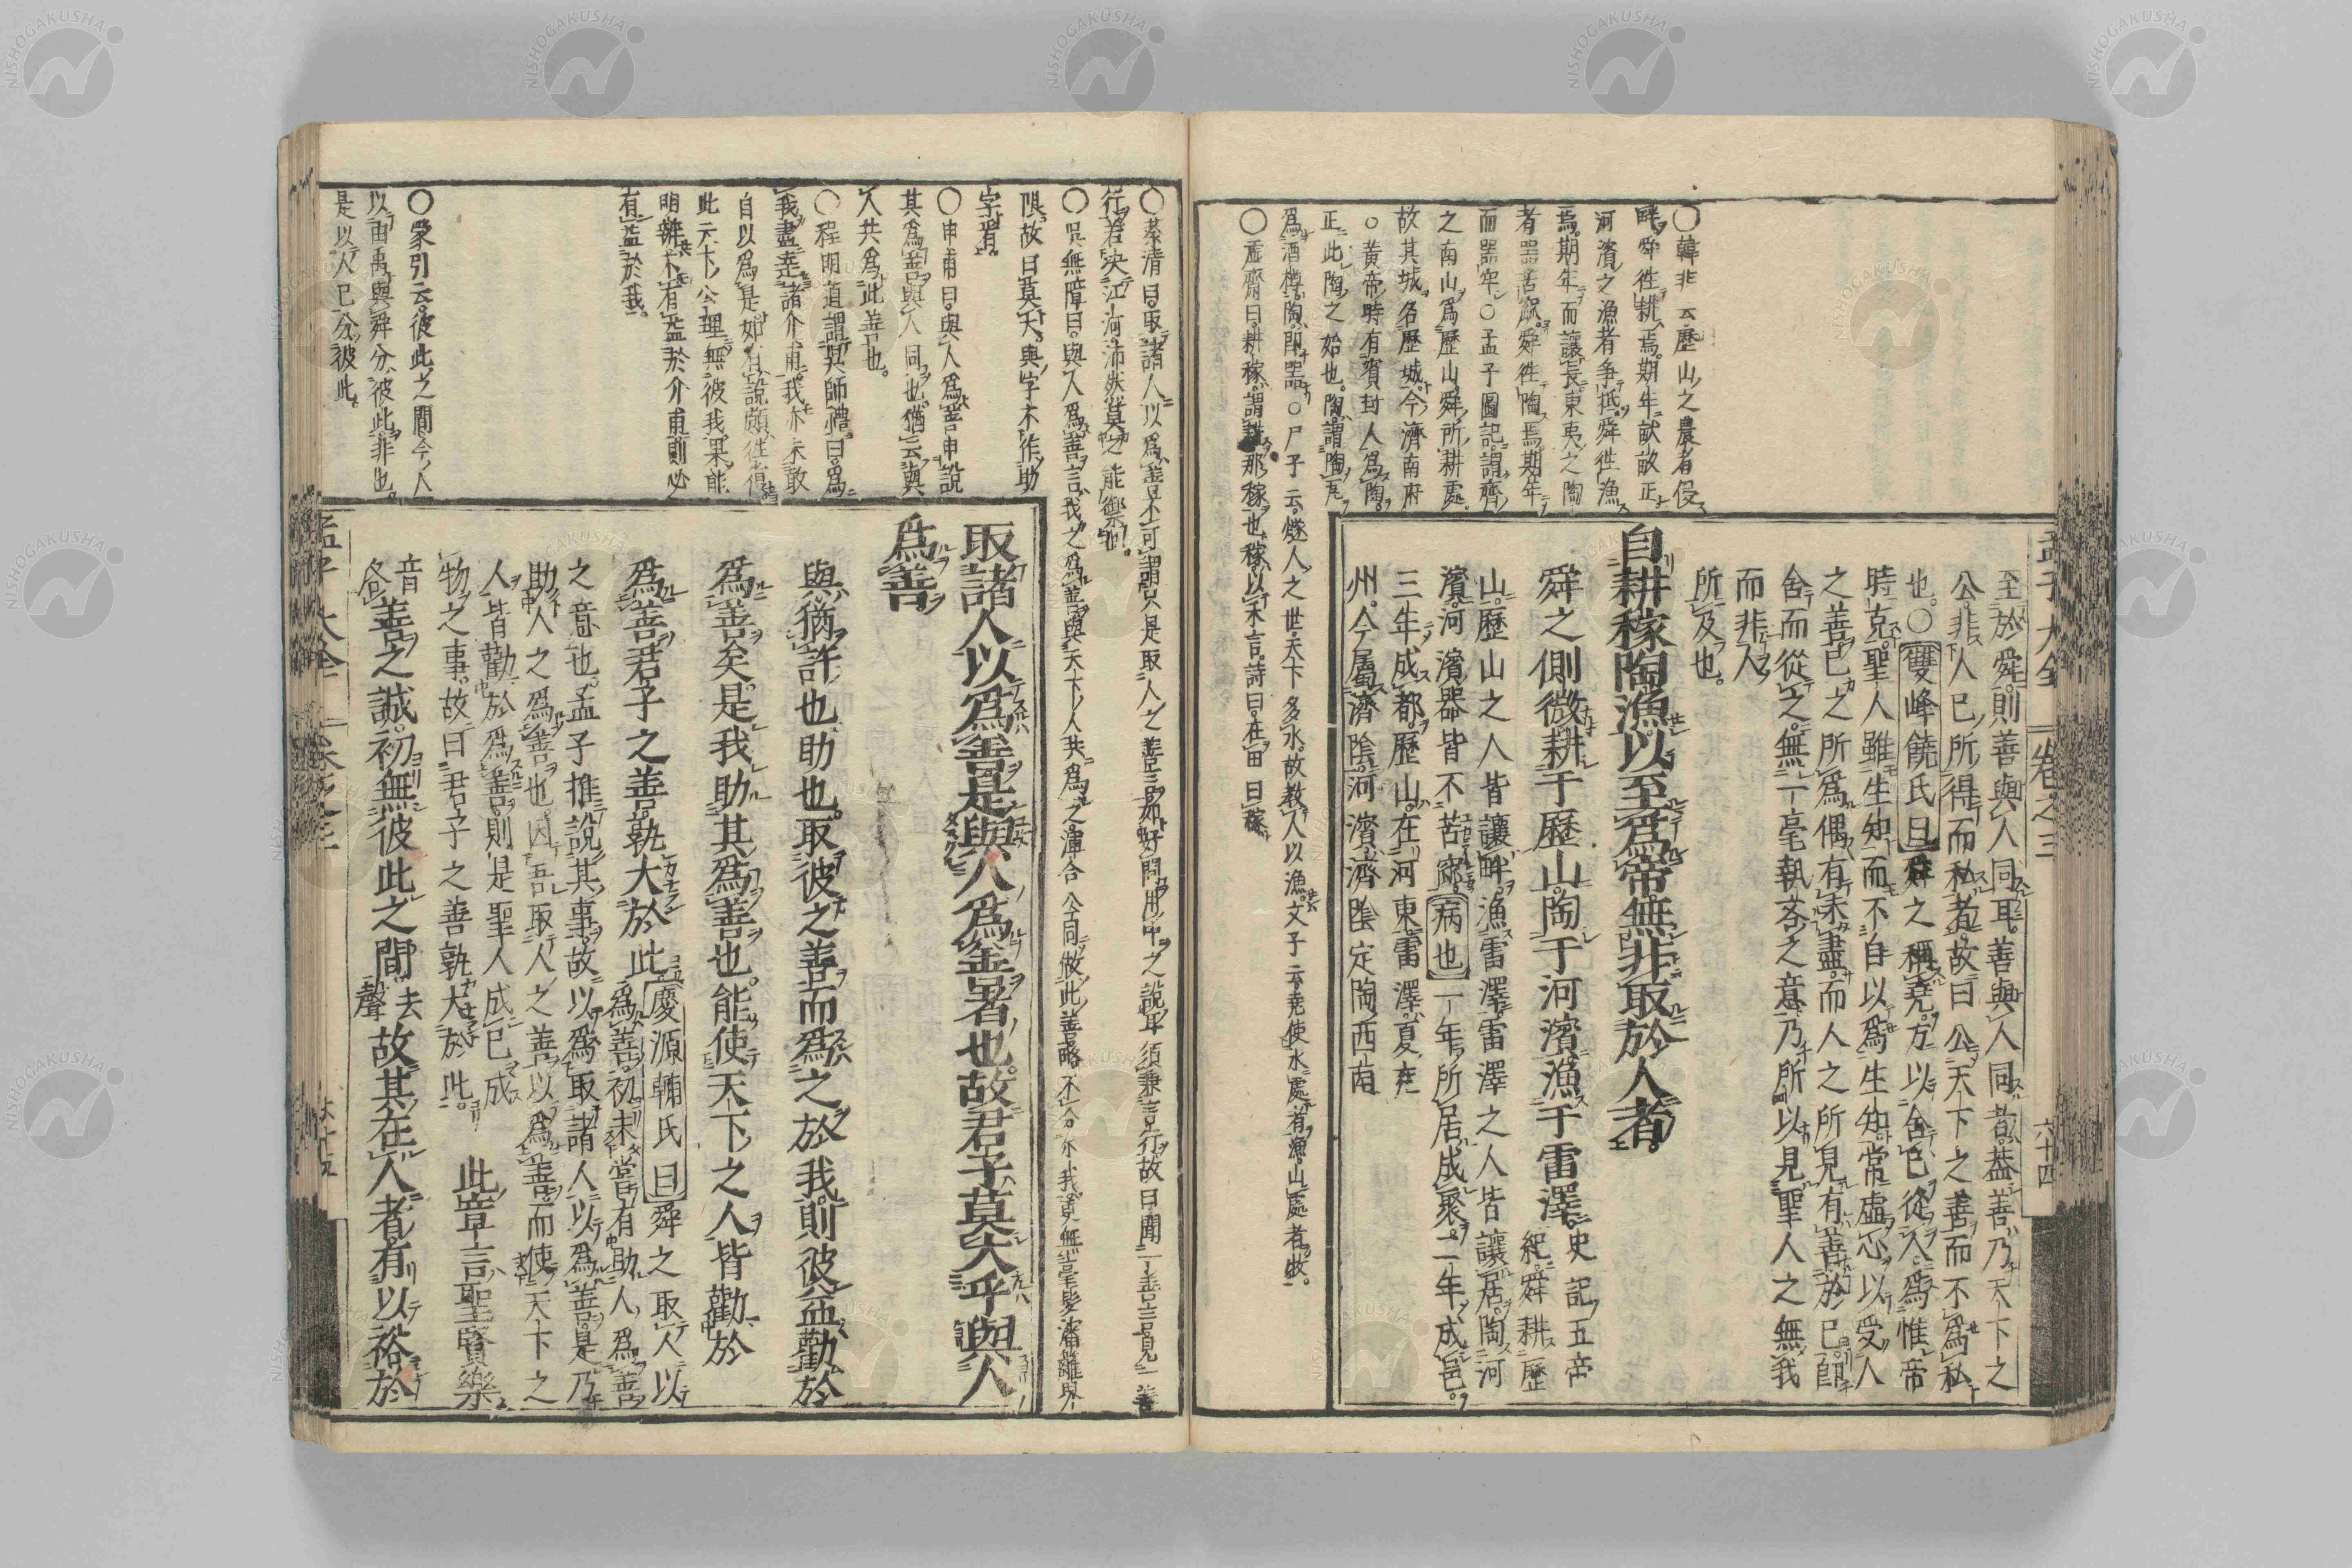 孟子大全
卷之三
六十四
至於舜則善與人同耳善與人同者蓋善乃天下之
公非人已所得而私者故曰公天下之善而不爲私
也○雙峰饒氏曰舜之稱堯方以舍已從人爲惟帝
時克聖人雖生知而不自以爲生知常虛心以受人
之善已之所爲偶有未盡而人之所見有善於已卽
舍而從之無一毫執吝之意乃所以見聖人之無我
而非人
所及也
自耕稼陶漁以至爲帝無非取於人者
舜之側微耕于歷山陶于河濱漁于雷澤史記五帝
紀舜耕歷
山歷山之人皆讓畔漁雷澤雷澤之人皆讓居陶河
濱河濱器皆不苦窳病也一年所居成聚二年成邑
三年成都歷山在河東雷澤夏兗
州今屬濟陰河濱濟陰定陶西南
○韓非云歷山之農者侵
畔舜徃耕焉期年畎畝正
河濱之漁者爭抵舜徃漁
焉期年而讓長東夷之陶
者器苦窳舜徃陶焉期年
而器牢○孟子圖記謂齊
之南山爲歷山舜所耕處
故其城名歷城今濟南府
○黃帝時有甯封人爲陶
正此陶之始也陶謂陶瓦
爲酒樽陶卽器○尸子云燧人之世天下多水故教人以漁文子云堯使水處者漁山處者牧
○虛齋曰耕稼謂耕那稼也稼以禾言詩曰在田曰稼
○蔡清曰取諸人以爲善不可謂只是取人之善言如好問用中之說耳須兼言行故曰聞一善言見一善
行若決江河沛然莫之能禦也
○吳無障曰與人爲善言我之爲善與天下人共爲之渾合公同做此善略不分尒我眞無一毫髮瀋離界
限故曰莫大與字不作助
字看
○申甫曰與人爲善申說
其爲善與人同也猶云與
人共爲此善也
○程明道謂吳師禮曰爲
我盡達諸介甫我亦未敢
自以爲是如有說願徃復
此天下公理無彼我果能
明辨不有益於介甫則必
有益於我
○蒙引云彼此之間今人
以由禹與舜分彼此非也
是以人已分彼此
取諸人以爲善是與人爲善者也故君子莫大乎與人
爲善
與猶許也助也取彼之善而爲之於我則彼益勸於
爲善矣是我助其爲善也能使天下之人皆勸於
爲善君子之善孰大於此慶源輔氏曰舜之取人以
爲善初未嘗有助人爲善
之意也孟子推說其事故以爲取諸人以爲善是乃
助人之爲善也因吾取人之善以爲善而使天下之
人皆勸於爲善則是聖人成已成
物之事故曰君子之善孰大於此
此章言聖賢樂
善之誠初無彼此之間去聲故其在人者有以裕於
音
孟子大全
卷之三
六十五